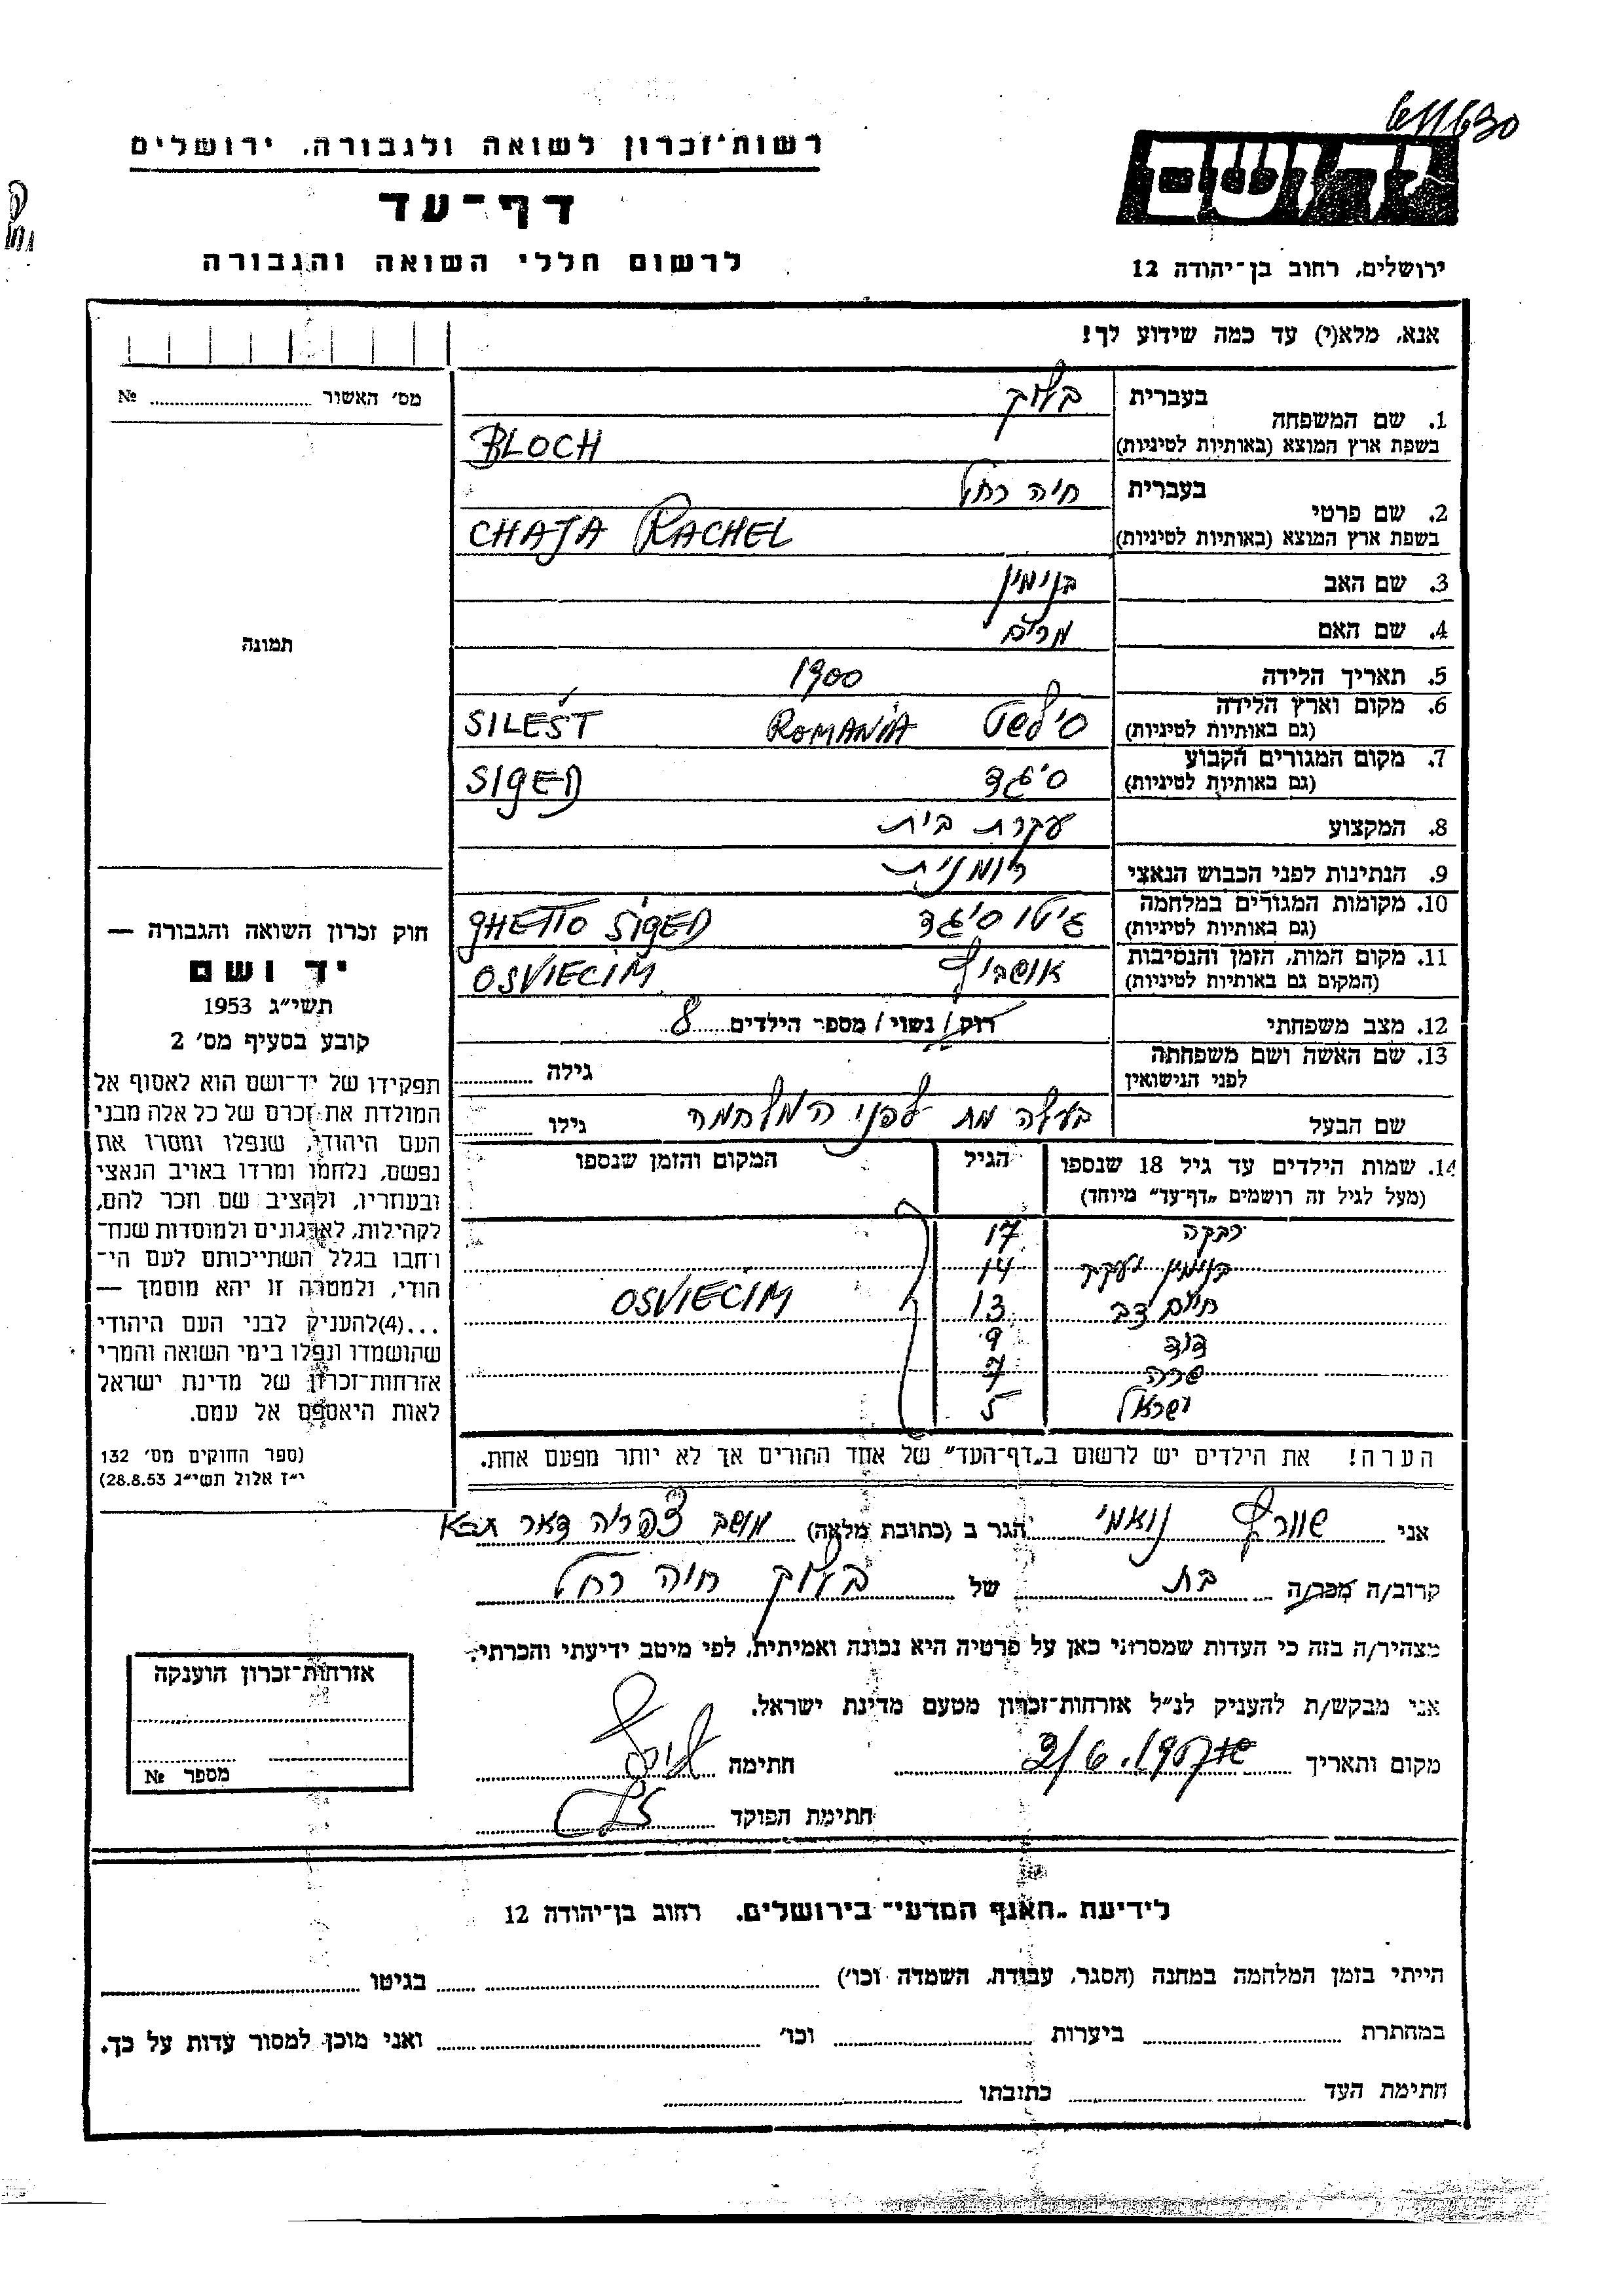 611630
רשות־זכרון לשואה ולגבורה. ירושלים
דף־עד
לרשום חללי השואה והגבורה
יד ושם
ירושלים, רחוב בן־יהודה 12
אנא, מלא(י) עד כמה שידוע לך!
מס׳ האשור № 
1. שם המשפחה בעברית בלוק
בשפת ארץ המוצא (באותיות לטיניות) BLOCH
2. שם פרטי בעברית חיה רחל
בשפת ארץ המוצא (באותיות לטיניות) CHAJA RACHEL
3. שם האב בנימין
4. שם האם מרים
5. תאריך הלידה 1900
6. מקום וארץ הלידה (גם באותיות לטיניות) סילשט ROMANIA SILEST
7. מקום המגורים הקבוע (גם באותיות לטיניות) סיגד SIGED
8. המקצוע עקרת בית
9. הנתינות לפני הכבוש הנאצי רומנית
10. מקומות המגורים במלחמה (גם באותיות לטיניות) גיטו סיגד GHETTO SIGED
11. מקום המות, הזמן והנסיבות (המקום גם באותיות לטיניות) אושביץ OSVIECIM
12. מצב משפחתי רוק/ נשוי / מספר הילדים 8
13. שם האשה ושם משפחתה לפני הנישואין גילה
שם הבעל בעלה מת לפני המלחמה גילו
14. שמות הילדים עד גיל 18 שנספו (מעל לגיל זה רושמים „דף־עד” מיוחד) הגיל המקום והזמן שנספו
רבקה 17
בנימין יעקב 14
חיים דב 13 OSVIECIM
דוד 9
שרה 7
ישראל 5
הערה! את הילדים יש לרשום ב„דף־העד” של אחד ההורים אך לא יותר מפעם אחת.
תמונה
חוק זכרון השואה והגבורה —
יד ושם
תשי״ג 1953
קובע בסעיף מס׳ 2
תפקידו של יד־ושם הוא לאסוף אל
המולדת את זכרם של כל אלה מבני
העם היהודי, שנפלו ומסרו את
נפשם, נלחמו ומרדו באויב הנאצי
ובעוזריו, ולהציב שם וזכר להם,
לקהילות, לארגונים ולמוסדות שנח־
רחבו בגלל השתייכותם לעם הי־
הודי, ולמטרה זו יהא מוסמך —
...(4)להעניק לבני העם היהודי
שהושמדו ונפלו בימי השואה והמרי
אזרחות־זכרון של מדינת ישראל
לאות היאספם אל עמם.
(ספר החוקים מס׳ 132
י״ז אלול תשי״ג 28.8.53)
אני שוורץ נואמי הגר ב (כתובת מלאה) מושב צפריה דאר
קרוב/ה מכר/ה בת של בלוק חיה רחל
מצהיר/ה בזה כי העדות שמסרתי כאן על פרטיה היא נכונה ואמיתית, לפי מיטב ידיעתי והכרתי.
אני מבקש/ת להעניק לנ״ל אזרחות־זכרון מטעם מדינת ישראל.
מקום ותאריך חתימה
חתימת הפוקד
אזרחות־זכרון הוענקה
מספר №
לידיעת „האגף המדעי״ בירושלים. רחוב בן־יהודה 12
הייתי בזמן המלחמה במחנה (הסגר, עבודת, השמדה וכו׳) בגיטו
במחתרת ביערות וכו׳ ואני מוכן למסור עדות על כך.
חתימת העד כתובתו